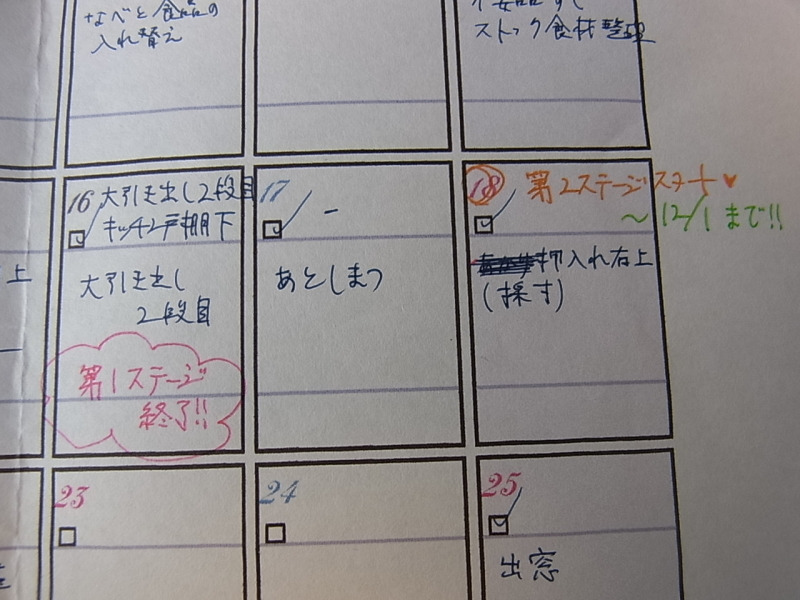 なべと食品の
入れ替え
ストック食材整理
16 大引き出し2段目
キッチン戸棚下
大引き出し
2段目
第1ステージ
終了!!
17 ー
あとしまつ
18 第2ステージスタート♥
〜12/1まで!!
押入れ右上
(採寸)
上
23
24
25
出窓